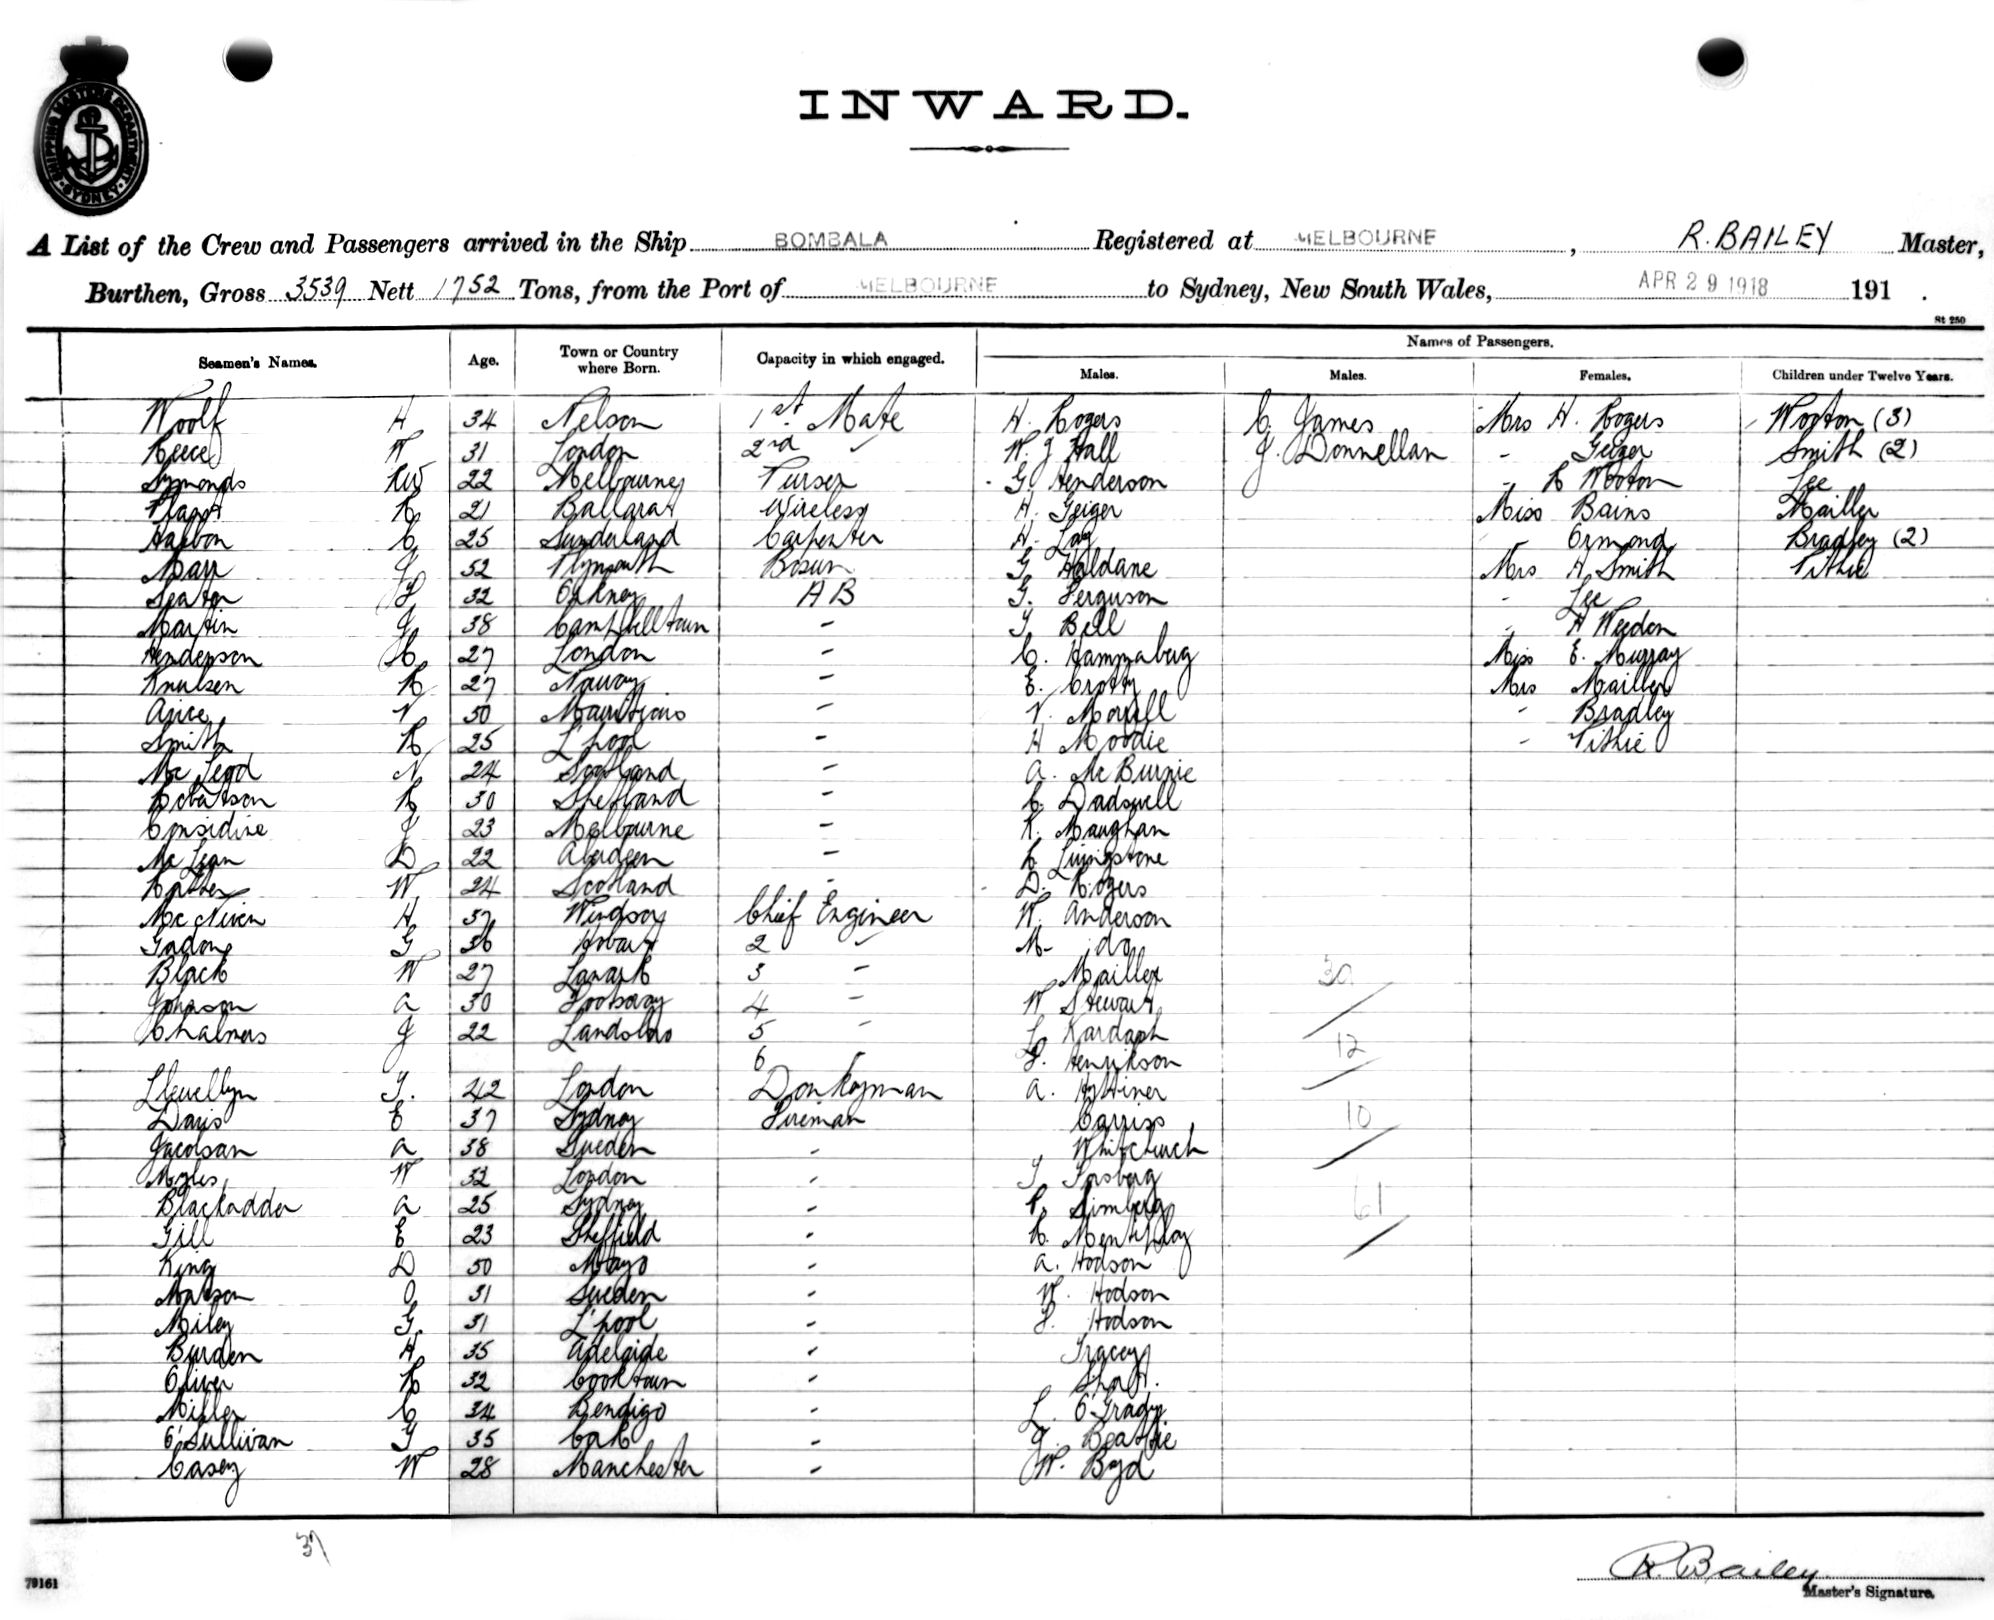 SHIPPING MASTERS DEPARTMENT SYDNEY
INWARD.
A List of the Crew and Passengers arrived in the Ship BOMBALA Registered at MELBOURNE, R. BAILEY Master,
Burthen, Gross 3539 Nett 1752 Tons, from the Port of MELBOURNE to Sydney, New South Wales, APR 29 1918 191 .
St 250
Names of Passengers.
Seamen's Names. Age. Town or Country where Born. Capacity in which engaged. Males. Males. Females. Children under Twelve Years.
Woolf H 34 Nelson 1st Mate H. Rogers C James Mrs H. Rogers Wooton (3)
Reece W 31 London 2nd " W. J Hall J. Donnellan - Geizer Smith (2)
Symonds RW 22 Melbourne Purser G. Henderson - R Wooton Lee
R 21 Ballarat Wireless H. Geiger Miss Bains Mailler
Harbon C 25 Sunderland Carpenter H. - Ormond Bradley (2)
Marr J 52 Plymouth Bosun G Haldane Mrs H Smith Pithie
Seater J 32 Orkney AB G. Ferguson - Lee
Martin J 38 Campbelltown - T Bell - H Weedon
Henderson C 27 London - C. Hammaberg Miss E. Murray
Knulsen R 27 Norway - E. Crotty Mrs Mailler
V 50 Mauritious - V. Morrell - Bradley
Smith R 25 L'pool - H Moodie - Pithie
Mc Leod N 24 Scotland - A. Mc Burnie
Robertson R 30 Shetland - C. Dadswell
Considine J 23 Melbourne - R. Maughan
Mc Lean D 22 Aberdeen - R Livingstone
W 24 Scotland - D. Rogers
Mc Niven H 37 Windsor Chief Engineer W. Anderson
G 36 Hobart 2 - M- do
Black W 27 Lanark 3 - Mailler 39
Johnson A 30 Footscray 4 - W Stewart
Chalmers J 22 5 - L Kardash 12
6 J. Henrikson
Llewellyn T. 42 London Donkeyman A.
Davis E 37 Sydney Fireman Carriss 10
Jacobsan A 38 Sweden - Whitchurch
Myles W 32 London - T Forsberg
Blackadder A 25 Sydney - R. Simberg 61
Gill E 23 Sheffield - R. Mentiplay
King D 50 Mayo - A. Hodson
Matson O 31 Sweden - W. Hodson
Miley G. 31 L'pool - J. Hodson
Burden H 35 Adelaide - Tracey
Oliver R 32 Cooktown -
Miller C 34 Bendigo - L. O'Grady
O'Sullivan J 35 Cork - J. Beattie
Casey W 28 Manchester - W. Boyd
37
R. Bailey
79161
Master's Signature.